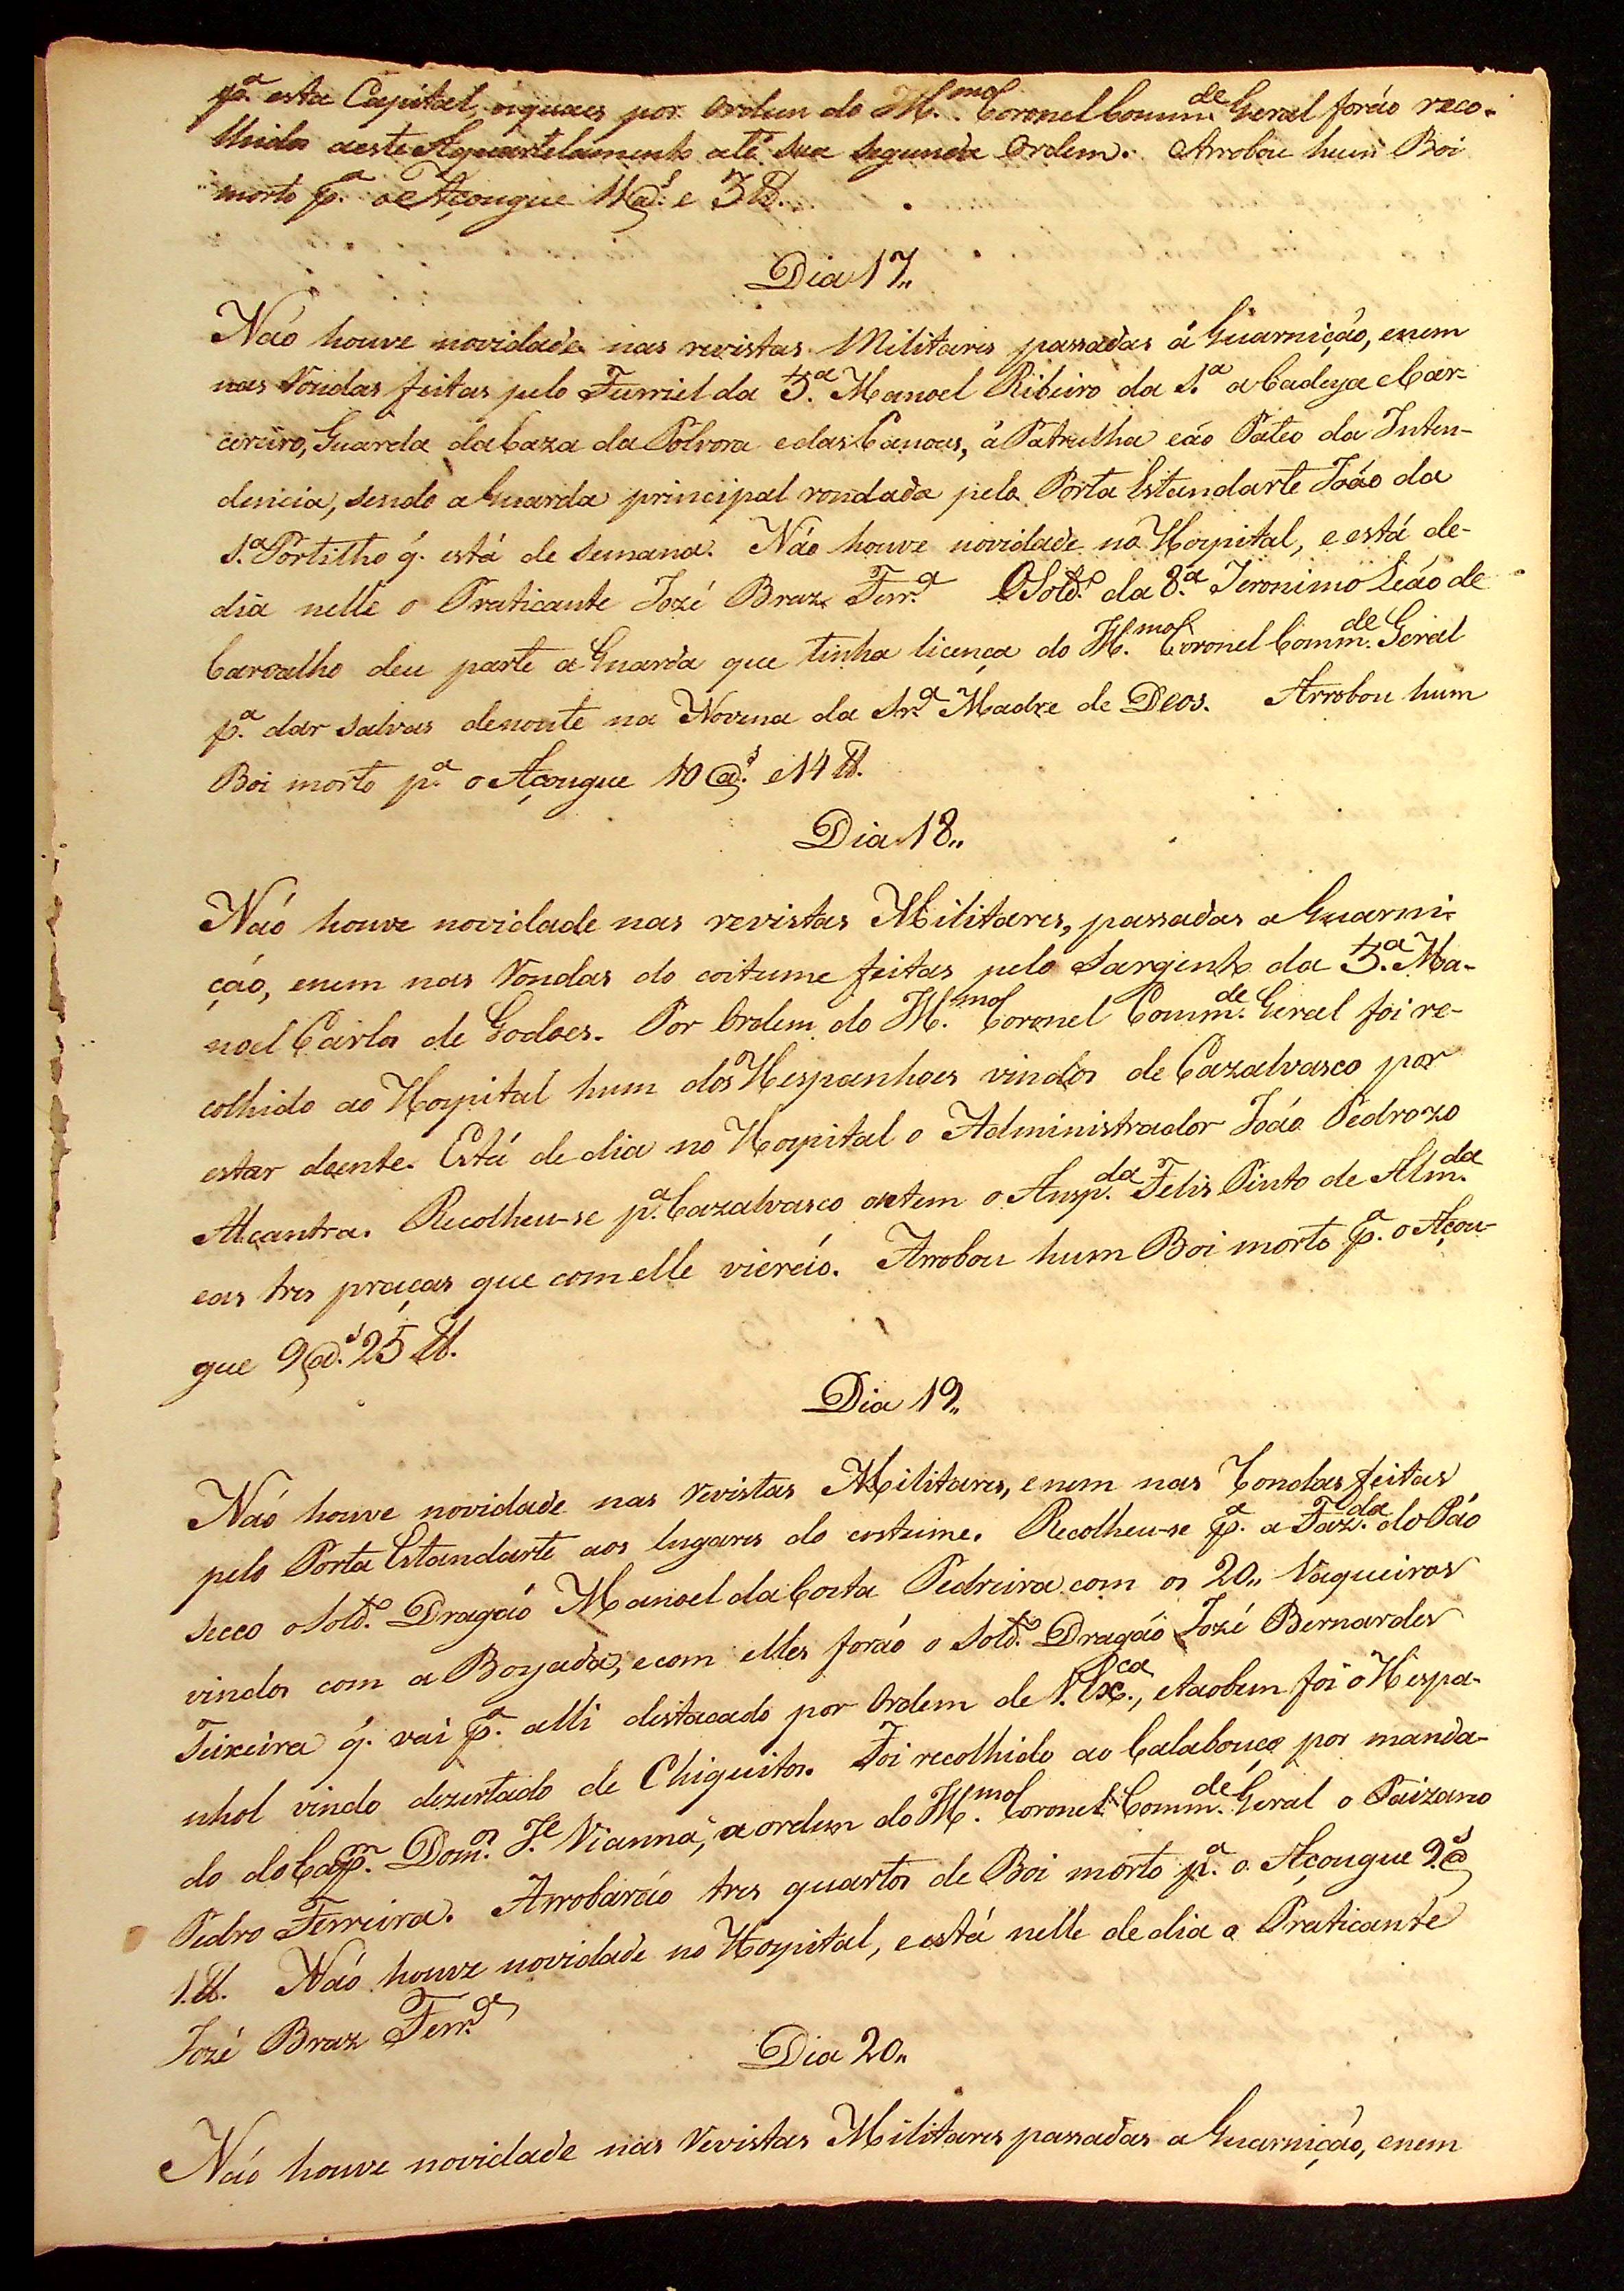 p.ª esta Capital, os quaes por Ordem do Ill.mo Coronel Comm.de Geral forão reco-
lhidos aeste Aquartelamento até sua segunda Ordem. Arrobou hum Boi
morto p.ª o Açougue 11 @.s e 3 lb.
Dia 17,,
Não houve novidade nas revistas Militares passadas á Guarnição, enem
nas Rondas feitas pelo Furriel da 3.ª Manoel Ribeiro da S.ª a Cadeya e Car-
cereiro, Guarda da Caza da Polvora e das Canoas, á Patrulha eáo Páteo da Inten-
dencia, sendo a Guarda principal rondada pelo Porta Estandarte João da
S.ª Portilho q. está de semana. Não houve novidade no Hospital, e está de-
dia nelle o Praticante Jozé Braz Ferr.ª O Sold.º da 8.ª Jeronimo Leão de
Carvalho deu parte a Guarda que tinha licença do Ill.mo Coronel Comm.de Geral
p.ª dar salvas denoute na Novena da Sr.ª Madre de Deos. Arrobou hum
Boi morto p.ª o Açougue 10 @.s e 14 lb.
Dia 18,,
Não houve novidade nas revistas Militares, passadas a Guarni-
ção, enem nas Rondas do coitume feitas pelo Sargento da 3.ª Ma-
noel Carlos de Godoes. Por Ordem do Ill.mo Coronel Comm.de Geral foi re-
colhido ao Hospital hum dos Hespanhoes vindos de Cazalvasco por
estar doente. Está de dia no Hospital o Administrador João Pedrozo
Alcantra. Recolheu-se p.ª Cazalvasco ontem o Ansp.da Felis Pinto de Alm.da
eas tres praças que comelle vierão. Arrobou hum Boi morto p.ª o Açou-
gue 9 @.s 25 lb.
Dia 19,,
Não houve novidade nas revistas Militares, enem nas Rondas feitas
pelo Porta Estandarte aos lugares do costume. Recolheu-se p.ª a Faz.da do Páo
secco o Sold.º Dragão Manoel da Costa Pedreira com os 20,, Vaqueiros
vindos com a Boyada, ecom elles forão o Sold.º Dragão Jozé Bernardes
Teixeira q. vai p.ª alli destacado por Ordem de S. Ex.ca, etaobem foi o Hespa-
nhol vindo dezertado de Chiquitos. Foi recolhido ao Calabouço por manda-
do do Cap.m Dom.os J.e Vianna, a ordem do Ill.mo Coronel Comm.de Geral o Paizano
Pedro Ferreira. Arrobarão tres quartos de Boi morto p.ª o Açougue 9.@s
1.lb. Não houve novidade no Hospital, e está nelle de dia o Praticante
Jozé Braz Ferr.ª
Dia 20,,
Não houve novidade nas revistas Militares passadas a Guarnição, enem